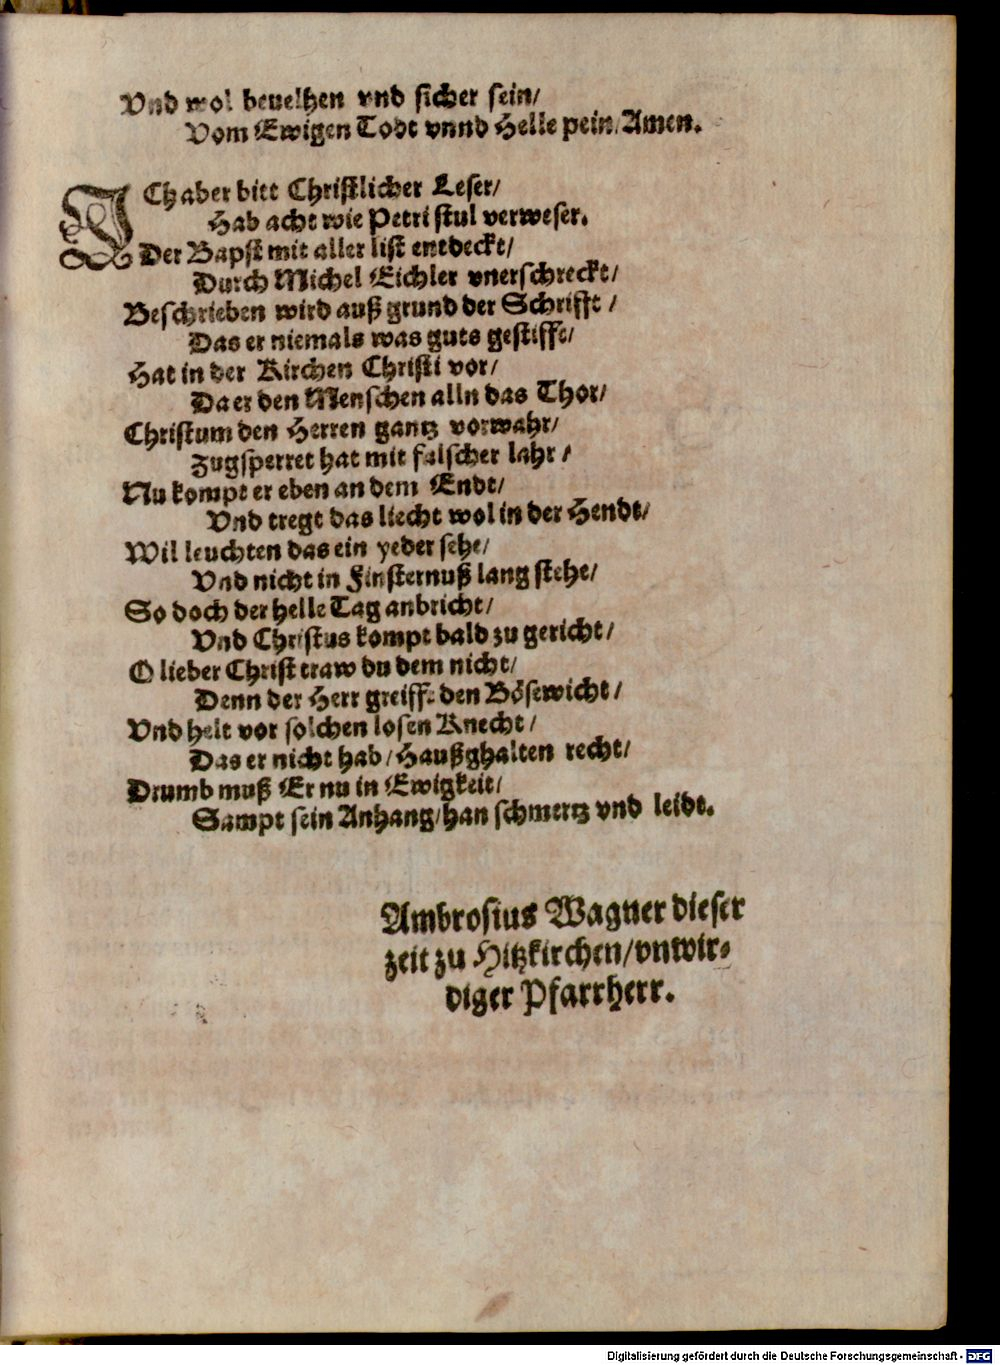 Vnd wol beuelhen vnd sicher sein/
Vom Ewigen Todt vnnd Helle pein/Amen.
ICh aber bitt Christlicher Leser/
Hab acht wie Petri stul verweser.
Der Bapst mit aller list entdeckt/
Durch Michel Eichler vnerschreckt/
Beschrieben wird auß grund der Schrifft /
Das er niemals was guts gestifft/
Hat in der Kirchen Christi vor/
Da er den Menschen alln das Thor/
Christum den Herren gantz vorwahr/
Zugsperret hat mit falscher lahr /
Nu kompt er eben an dem Endt/
Vnd tregt das liecht wol in der Hendt/
Wil leuchten das ein yeder sehe/
Vnd nicht in Finsternuß lang stehe/
So doch der helle Tag anbricht/
Vnd Christus kompt bald zu gericht/
O lieber Christ traw du dem nicht/
Denn der Herr greifft den Bösewicht /
Vnd helt vor solchen losen Knecht /
Das er nicht hab/Haußghalten recht/
Drumb muß Er nu in Ewigkeit/
Sampt sein Anhang/han schmertz vnd leidt.
Ambrosius Wagner dieser
zeit zu Hitzkirchen/vnwir-
diger Pfarrherr.
Digitalisierung gefördert durch die Deutsche Forschungsgemeinschaft - DFG